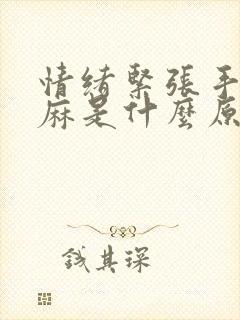 情绪緊張手
麻是什麼原
錢其琛